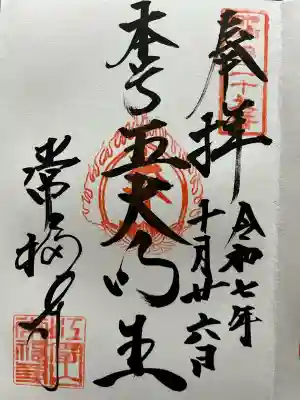 奉拝
令和七年
十月廿六日
本尊五大明王
常福寺